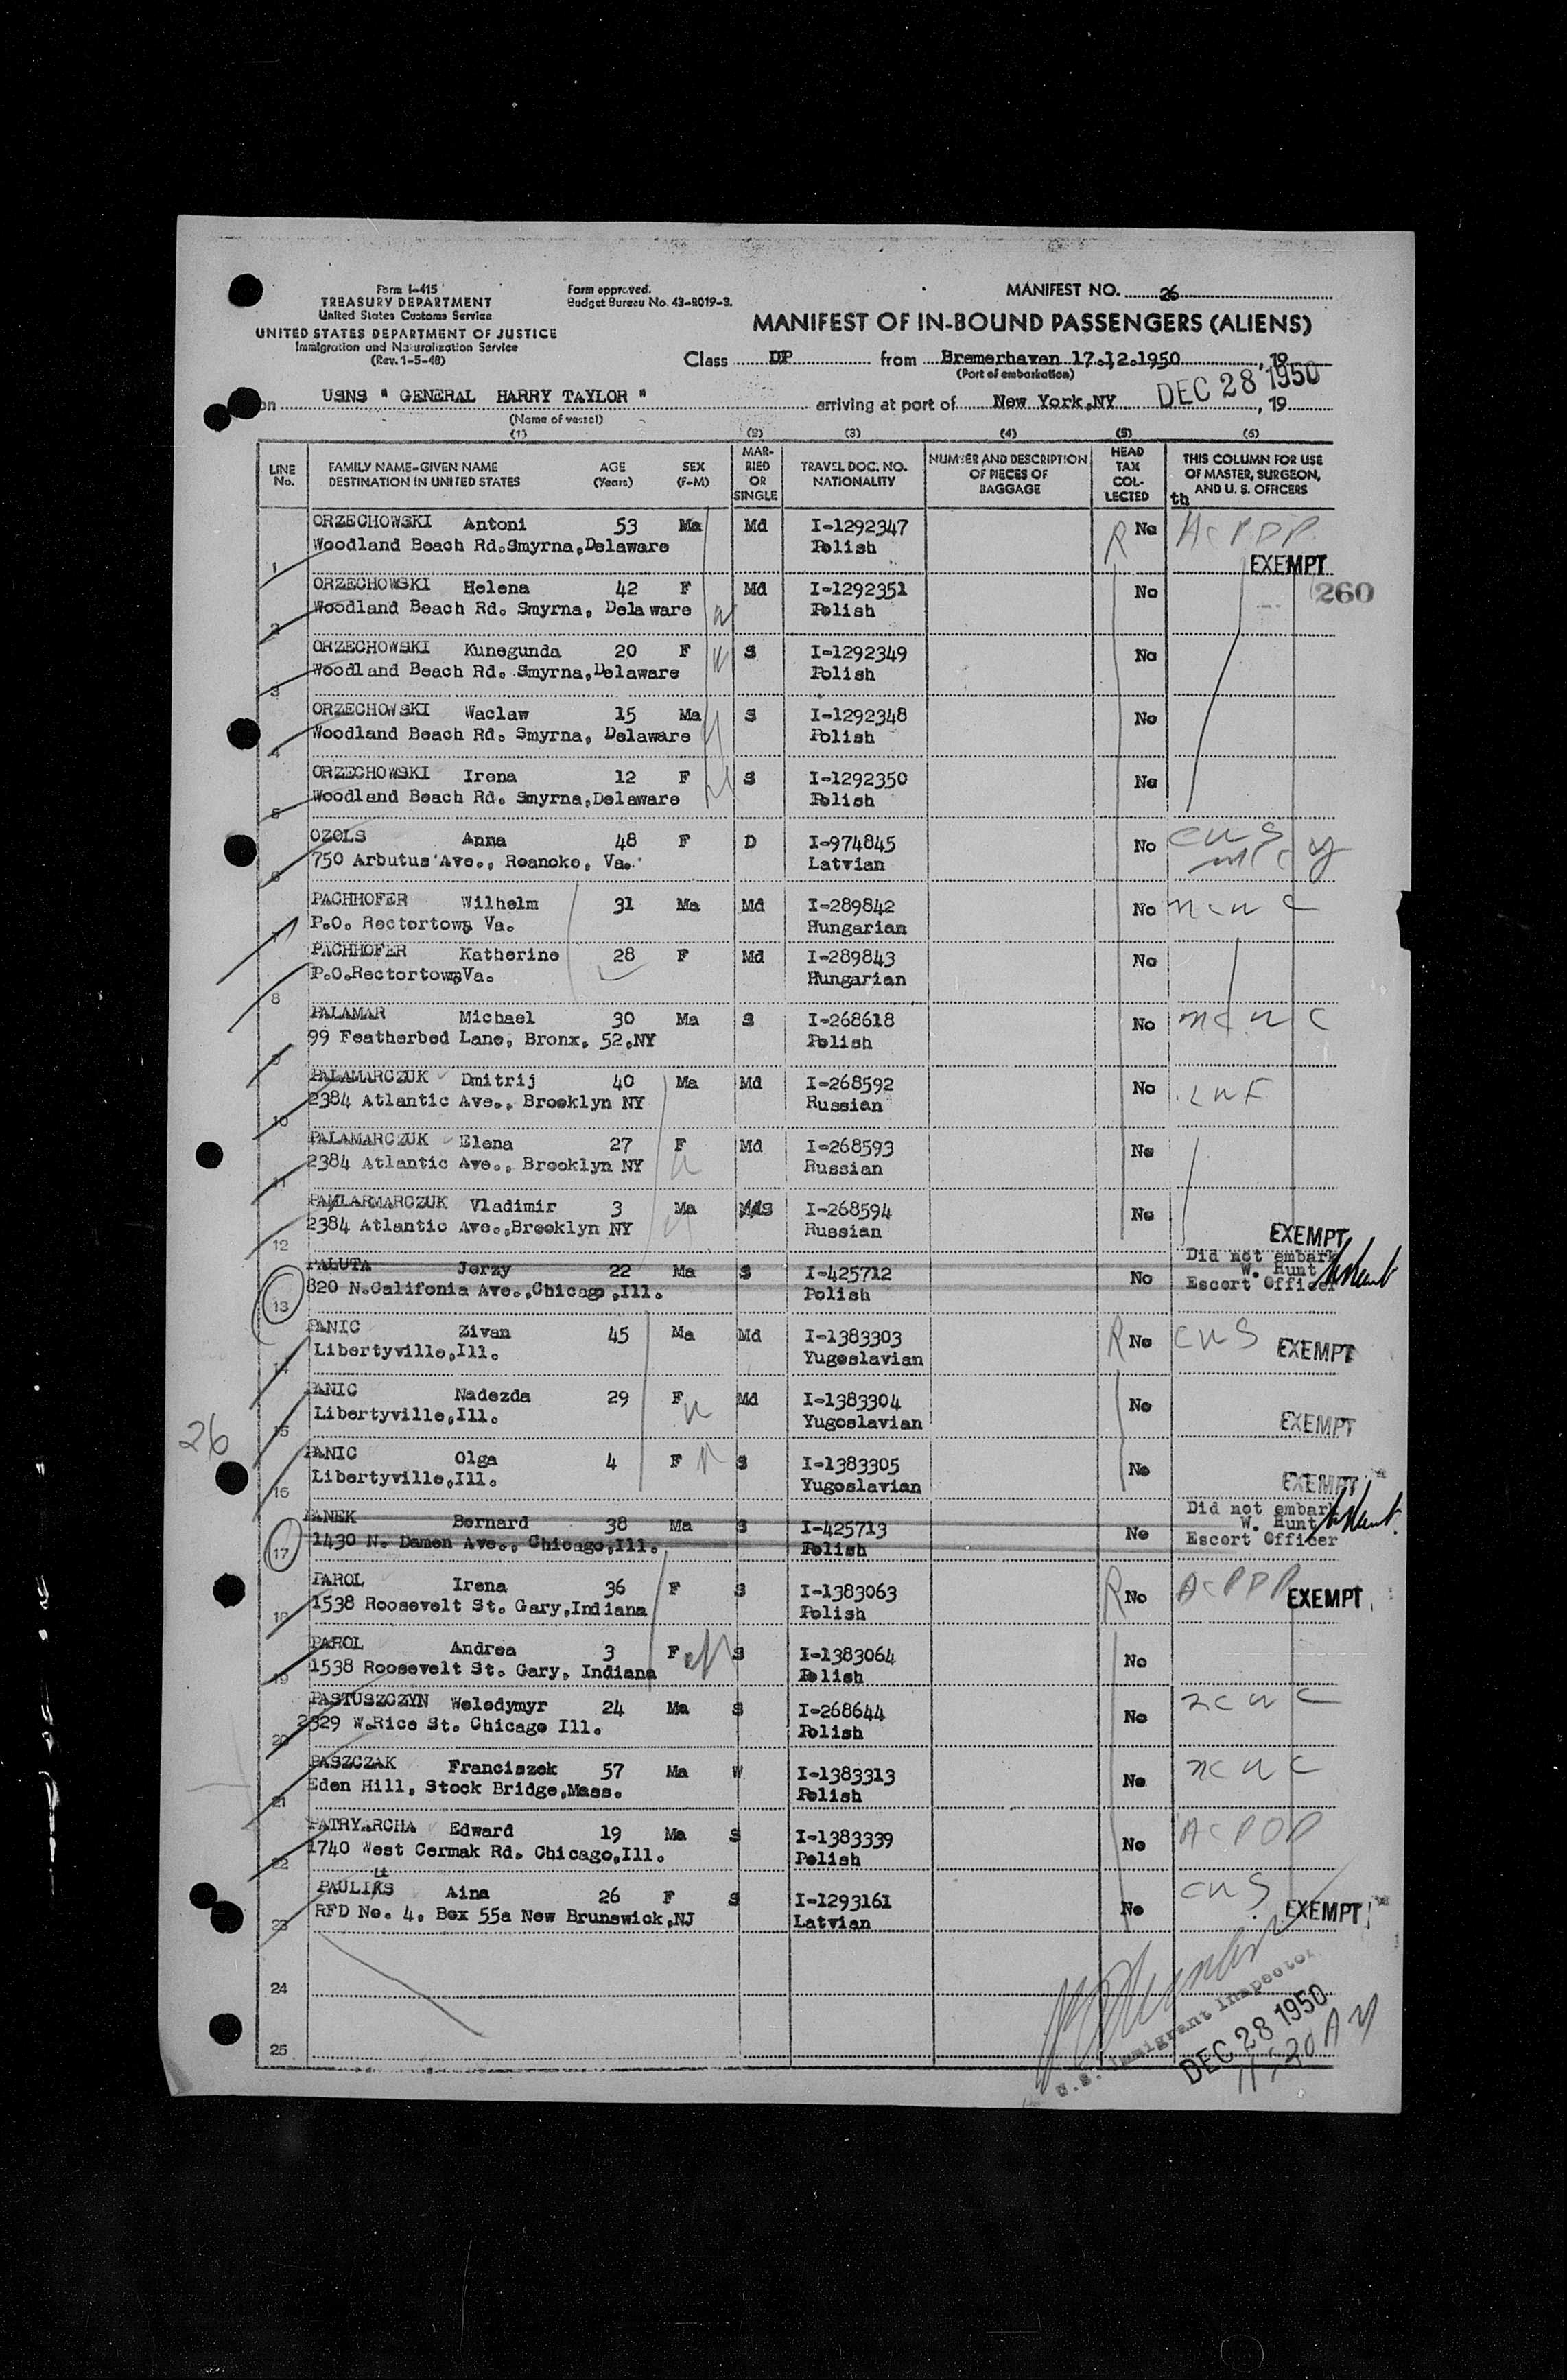 Form I-415
TREASURY DEPARTMENT
United States Customs Service
UNITED STATES DEPARTMENT OF JUSTICE
Immigration and Naturalization Service
(Rev. 1-5-48)
Form approved.
Budget Bureau No. 43-R019-3.
MANIFEST NO. 26
MANIFEST OF IN-BOUND PASSENGERS (ALIENS)
Class DP from Bremerhaven 17.12.1950, 19
(Port of embarkation)
DEC 28 1950
on USNS " GENERAL HARRY TAYLOR " arriving at port of New York,NY , 19
(Name of vessel)
(1) (2) (3) (4) (5) (6)
LINE No. FAMILY NAME-GIVEN NAME DESTINATION IN UNITED STATES AGE (Years) SEX (F-M) MARRIED OR SINGLE TRAVEL DOC. NO. NATIONALITY NUMBER AND DESCRIPTION OF PIECES OF BAGGAGE HEAD TAX COLLECTED THIS COLUMN FOR USE OF MASTER, SURGEON, AND U. S. OFFICERS
th
ORZECHOWSKI Antoni 53 Ma Md I-1292347 R No
1 Woodland Beach Rd.Smyrna,Delaware Polish EXEMPT
ORZECHOWSKI Helena 42 F Md I-1292351 No 260
2 Woodland Beach Rd. Smyrna, Delaware Polish
ORZECHOWSKI Kunegunda 20 F S I-1292349 No
3 Woodland Beach Rd. Smyrna,Delaware Polish
ORZECHOWSKI Waclaw 15 Ma S I-1292348 No
4 Woodland Beach Rd. Smyrna, Delaware Polish
ORZECHOWSKI Irena 12 F S I-1292350 No
5 Woodland Beach Rd. Smyrna,Delaware Polish
OZOLS Anna 48 F D I-974845 No cws
6 750 Arbutus Ave., Roanoke, Va. Latvian
PACHHOFER Wilhelm 31 Ma Md I-289842 No ncwc
7 P.O. Rectortown Va. Hungarian
PACHHOFER Katherine 28 F Md I-289843 No
8 P.O.Rectortown,Va. Hungarian
PALAMAR Michael 30 Ma S I-268618 No ncwc
9 99 Featherbed Lane, Bronx, 52,NY Polish
PALAMARCZUK Dmitrij 40 Ma Md I-268592 No
10 2384 Atlantic Ave., Brooklyn NY Russian
PALAMARCZUK Elena 27 F Md I-268593 No
11 2384 Atlantic Ave., Brooklyn NY Russian
PAMLARMARCZUK Vladimir 3 Ma S I-268594 No
12 2384 Atlantic Ave.,Brooklyn NY Russian EXEMPT
PALUTA Jerzy 22 Ma S I-425712 No Did not embark
13 820 N.Califonia Ave.,Chicago,Ill. Polish W. Hunt
Escort Officer
PANIC Zivan 45 Ma Md I-1383303 R No cws EXEMPT
14 Libertyville,Ill. Yugoslavian
PANIC Nadezda 29 F Md I-1383304 No
15 Libertyville,Ill. Yugoslavian EXEMPT
PANIC Olga 4 F S I-1383305 No
16 Libertyville,Ill. Yugoslavian EXEMPT
26
PANEK Bernard 38 Ma S I-425713 No Did not embark
17 1430 N. Damen Ave., Chicago,Ill. Polish W. Hunt
Escort Officer
PAROL Irena 36 F S I-1383063 R No EXEMPT
18 1538 Roosevelt St. Gary,Indiana Polish
PAROL Andrea 3 F S I-1383064 No
19 1538 Roosevelt St. Gary, Indiana Polish
PASTUSZCZYN Wolodymyr 24 Ma S I-268644 No ncwc
20 2829 W.Rice St. Chicago Ill. Polish
PASZCZAK Franciszek 57 Ma W I-1383313 No ncwc
21 Eden Hill, Stock Bridge,Mass. Polish
PATRYARCHA Edward 19 Ma S I-1383339 No
22 1740 West Cermak Rd. Chicago,Ill. Polish
PAULIKS Aina 26 F S I-1293161 No cws
23 RFD No. 4, Box 55a New Brunswick,NJ Latvian EXEMPT
24
25
U.S. Immigrant Inspector
DEC 28 1950
11:20 AM